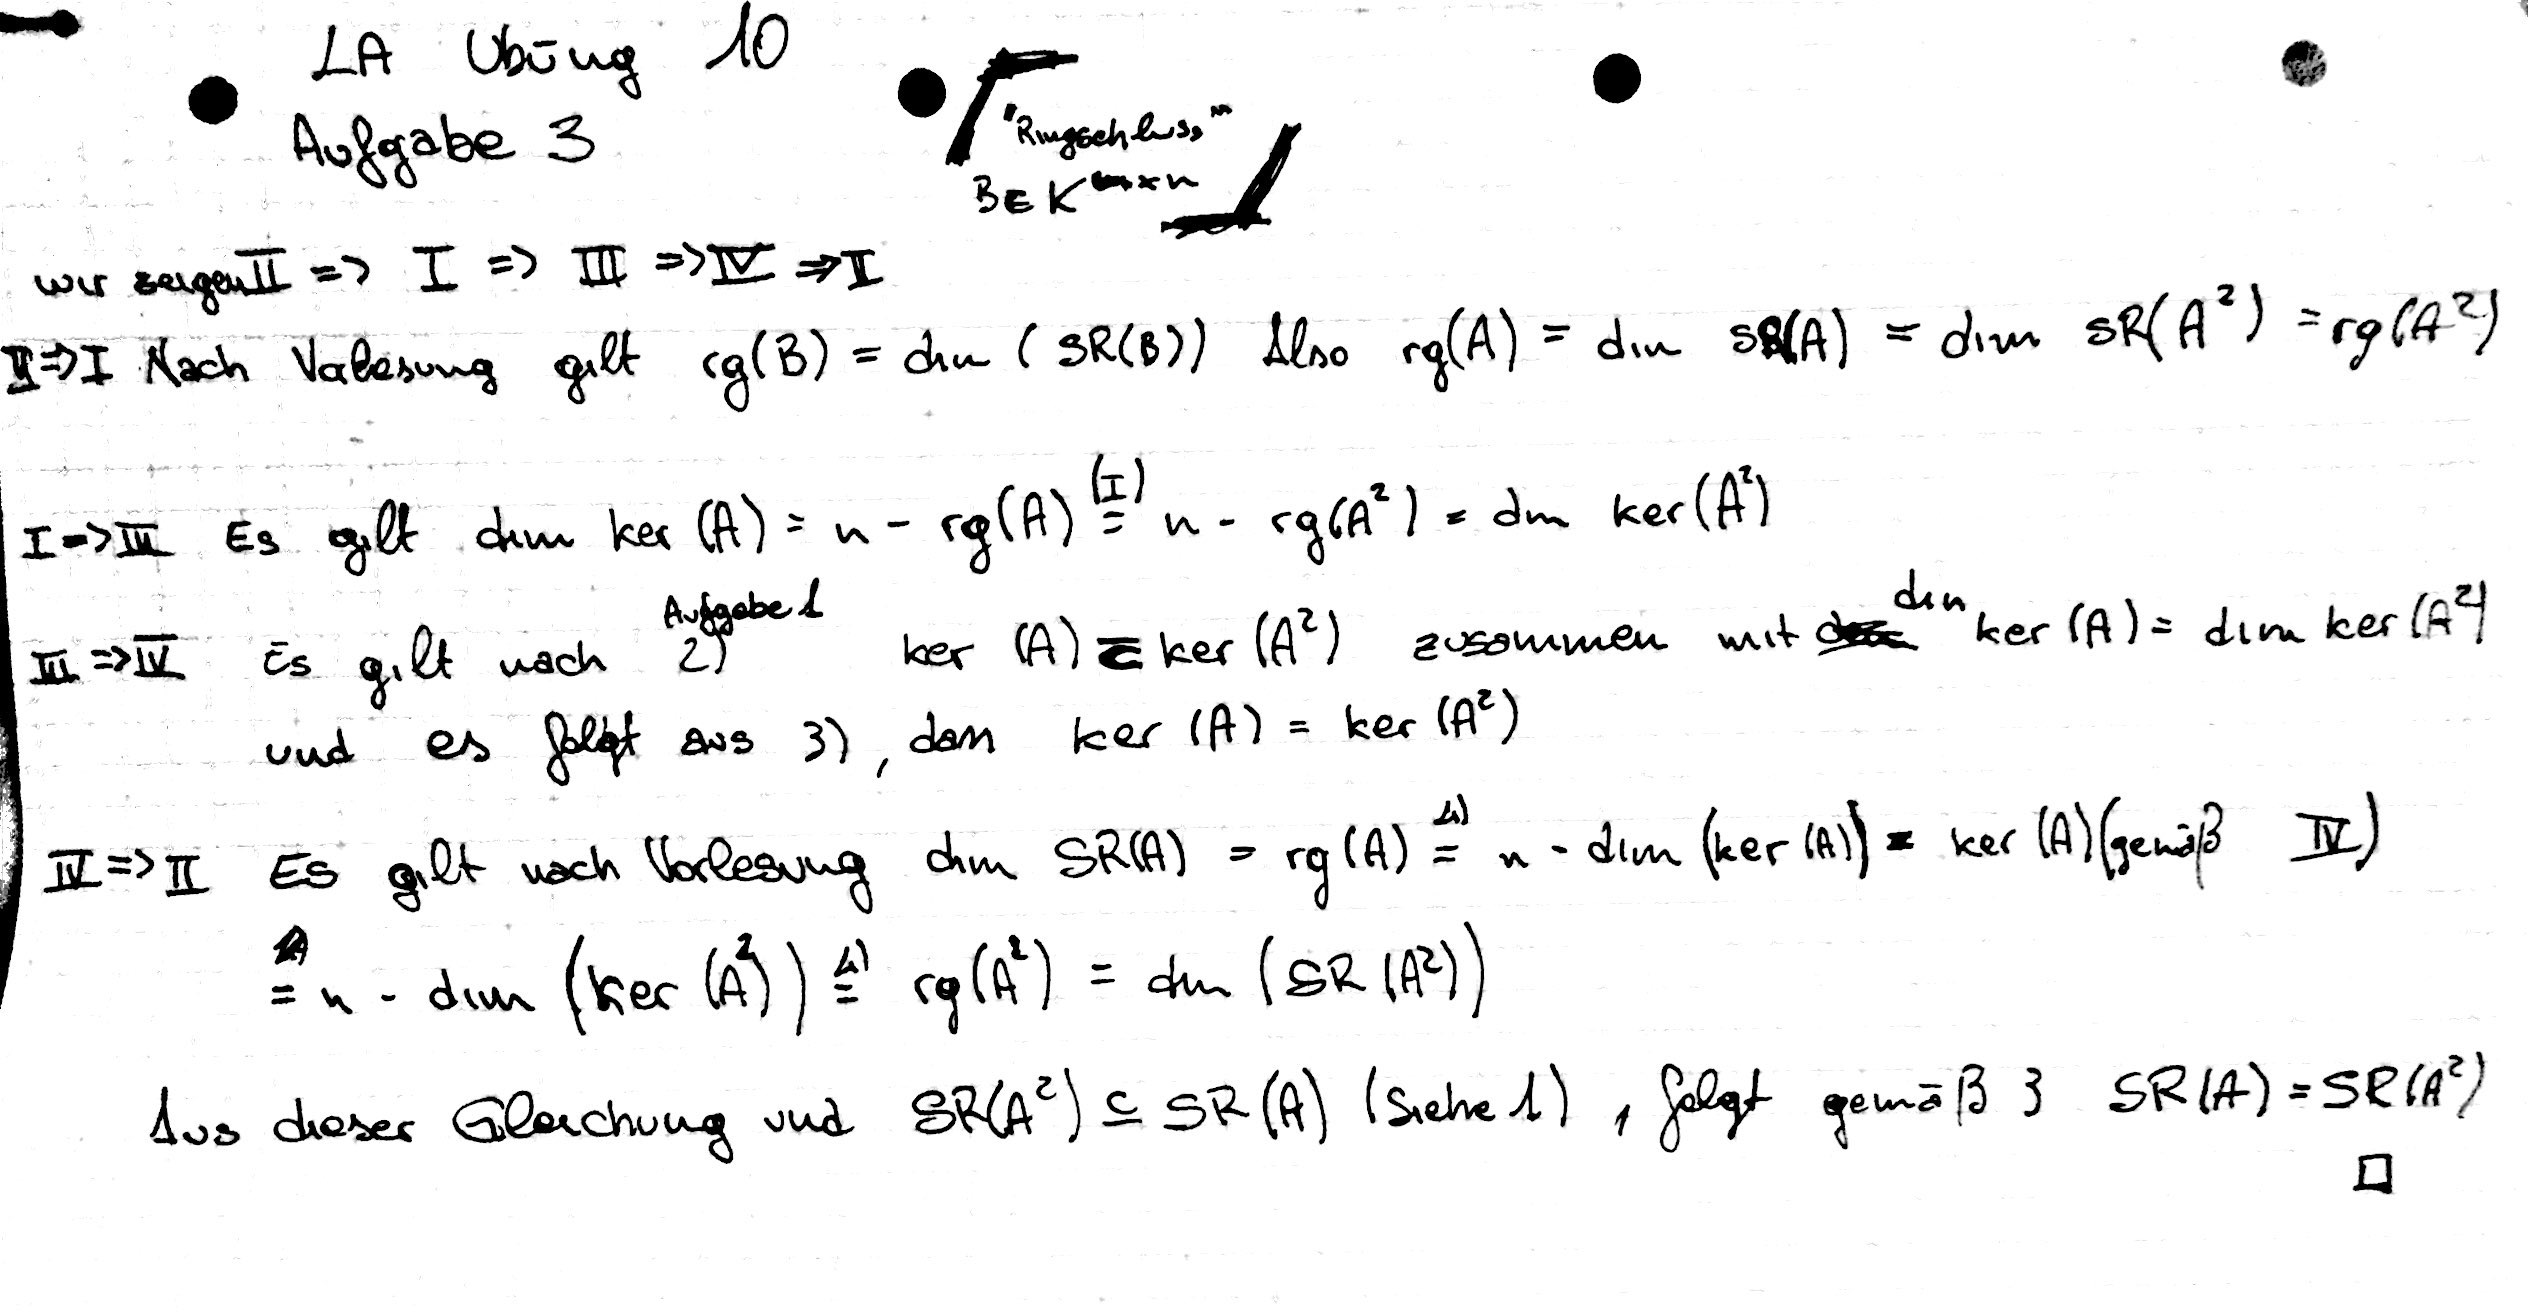 LA Übung 10
Aufgabe 3
"Ringschluss"
B ∈ K^(m×n)
wir zeigen II => I => III => IV => II
II => I Nach Vorlesung gilt rg(B) = dim (SR(B)) Also rg(A) = dim SR(A) = dim SR(A²) = rg(A²)
I => III Es gilt dim ker (A) = n - rg(A) (I)= n - rg(A²) = dim ker(A²)
III => IV Es gilt nach Aufgabe 1 2) ker (A) ⊆ ker (A²) zusammen mit dim ker (A) = dim ker (A²)
und es folgt aus 3), dass ker (A) = ker (A²)
IV => II Es gilt nach Vorlesung dim SR(A) = rg(A) 4)= n - dim (ker (A)) = ker (A) (gemäß IV)
= n - dim (ker (A²)) 4)= rg(A²) = dim (SR (A²))
Aus dieser Gleichung und SR(A²) ⊆ SR(A) (Siehe 1), folgt gemäß 3 SR(A) = SR(A²)
□